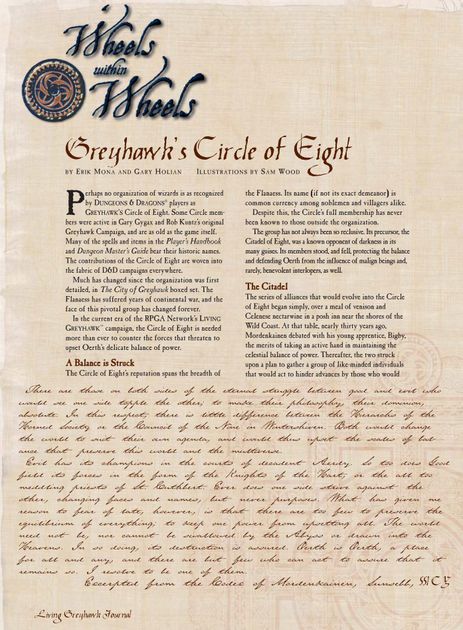 Wheels
within
Wheels
Greyhawk's Circle of Eight
BY ERIK MONA AND GARY HOLIAN ILLUSTRATIONS BY SAM WOOD
Perhaps no organization of wizards is as recognized
by DUNGEONS & DRAGONS® players as
GREYHAWK'S Circle of Eight. Some Circle mem-
bers were active in Gary Gygax and Rob Kuntz's original
Greyhawk Campaign, and are as old as the game itself.
Many of the spells and items in the Player's Handbook
and Dungeon Master's Guide bear their historic names.
The contributions of the Circle of Eight are woven into
the fabric of D&D campaigns everywhere.
Much has changed since the organization was first
detailed, in The City of Greyhawk boxed set. The
Flanaess has suffered years of continual war, and the
face of this pivotal group has changed forever.
In the current era of the RPGA Network's LIVING
GREYHAWK™ campaign, the Circle of Eight is needed
more than ever to counter the forces that threaten to
upset Oerth's delicate balance of power.
A Balance is Struck
The Circle of Eight's reputation spans the breadth of
the Flanaess. Its name (if not its exact demeanor) is
common currency among noblemen and villagers alike.
Despite this, the Circle's full membership has never
been known to those outside the organization.
The group has not always been so reclusive. Its precursor, the
Citadel of Eight, was a known opponent of darkness in its
many guises. Its members stood, and fell, protecting the balance
and defending Oerth from the influence of malign beings and,
rarely, benevolent interlopers, as well.
The Citadel
The series of alliances that would evolve into the Circle
of Eight began simply, over a meal of venison and
Celenese nectarwine in a posh inn near the shores of the
Wild Coast. At that table, nearly thirty years ago,
Mordenkainen debated with his young apprentice, Bigby,
the merits of taking an active hand in maintaining the
celestial balance of power. Thereafter, the two struck
upon a plan to gather a group of like-minded individuals
that would act to hinder advances by those who would
There are those on both sides of the eternal struggle between good and evil who
would see one side topple the other, to make their philosophy their dominion,
absolute. In this respect, there is little difference between the Hierarchs of the
Horned Society or the Council of the Nine in Wintershiven. Both would change
the world to suit their own agenda, and would thus upset the scales of bal-
ance that preserve this world and the multiverse.
Evil has its champions in the courts of decadent Aerdy. So too does Good
field its forces in the form of the Knights of the Hart, or the all too
meddling priests of St Cuthbert. Ever does one side strive against the
other, changing faces and names, but never purposes. What has given me
reason to fear of late, however, is that there are too few to preserve the
equilibrium of everything, to keep one power from upsetting all. The world
need not be, nor cannot be swallowed by the Abyss or drawn into the
Heavens. In so doing, its destruction is assured. Oerth is Oerth, a place
for all and any, and there are but few who can act to assure that it
remains so. I resolve to be one of them.
Excerpted from the Codex of Mordenkainen, Sunsebb, CY
Living Greyhawk Journal